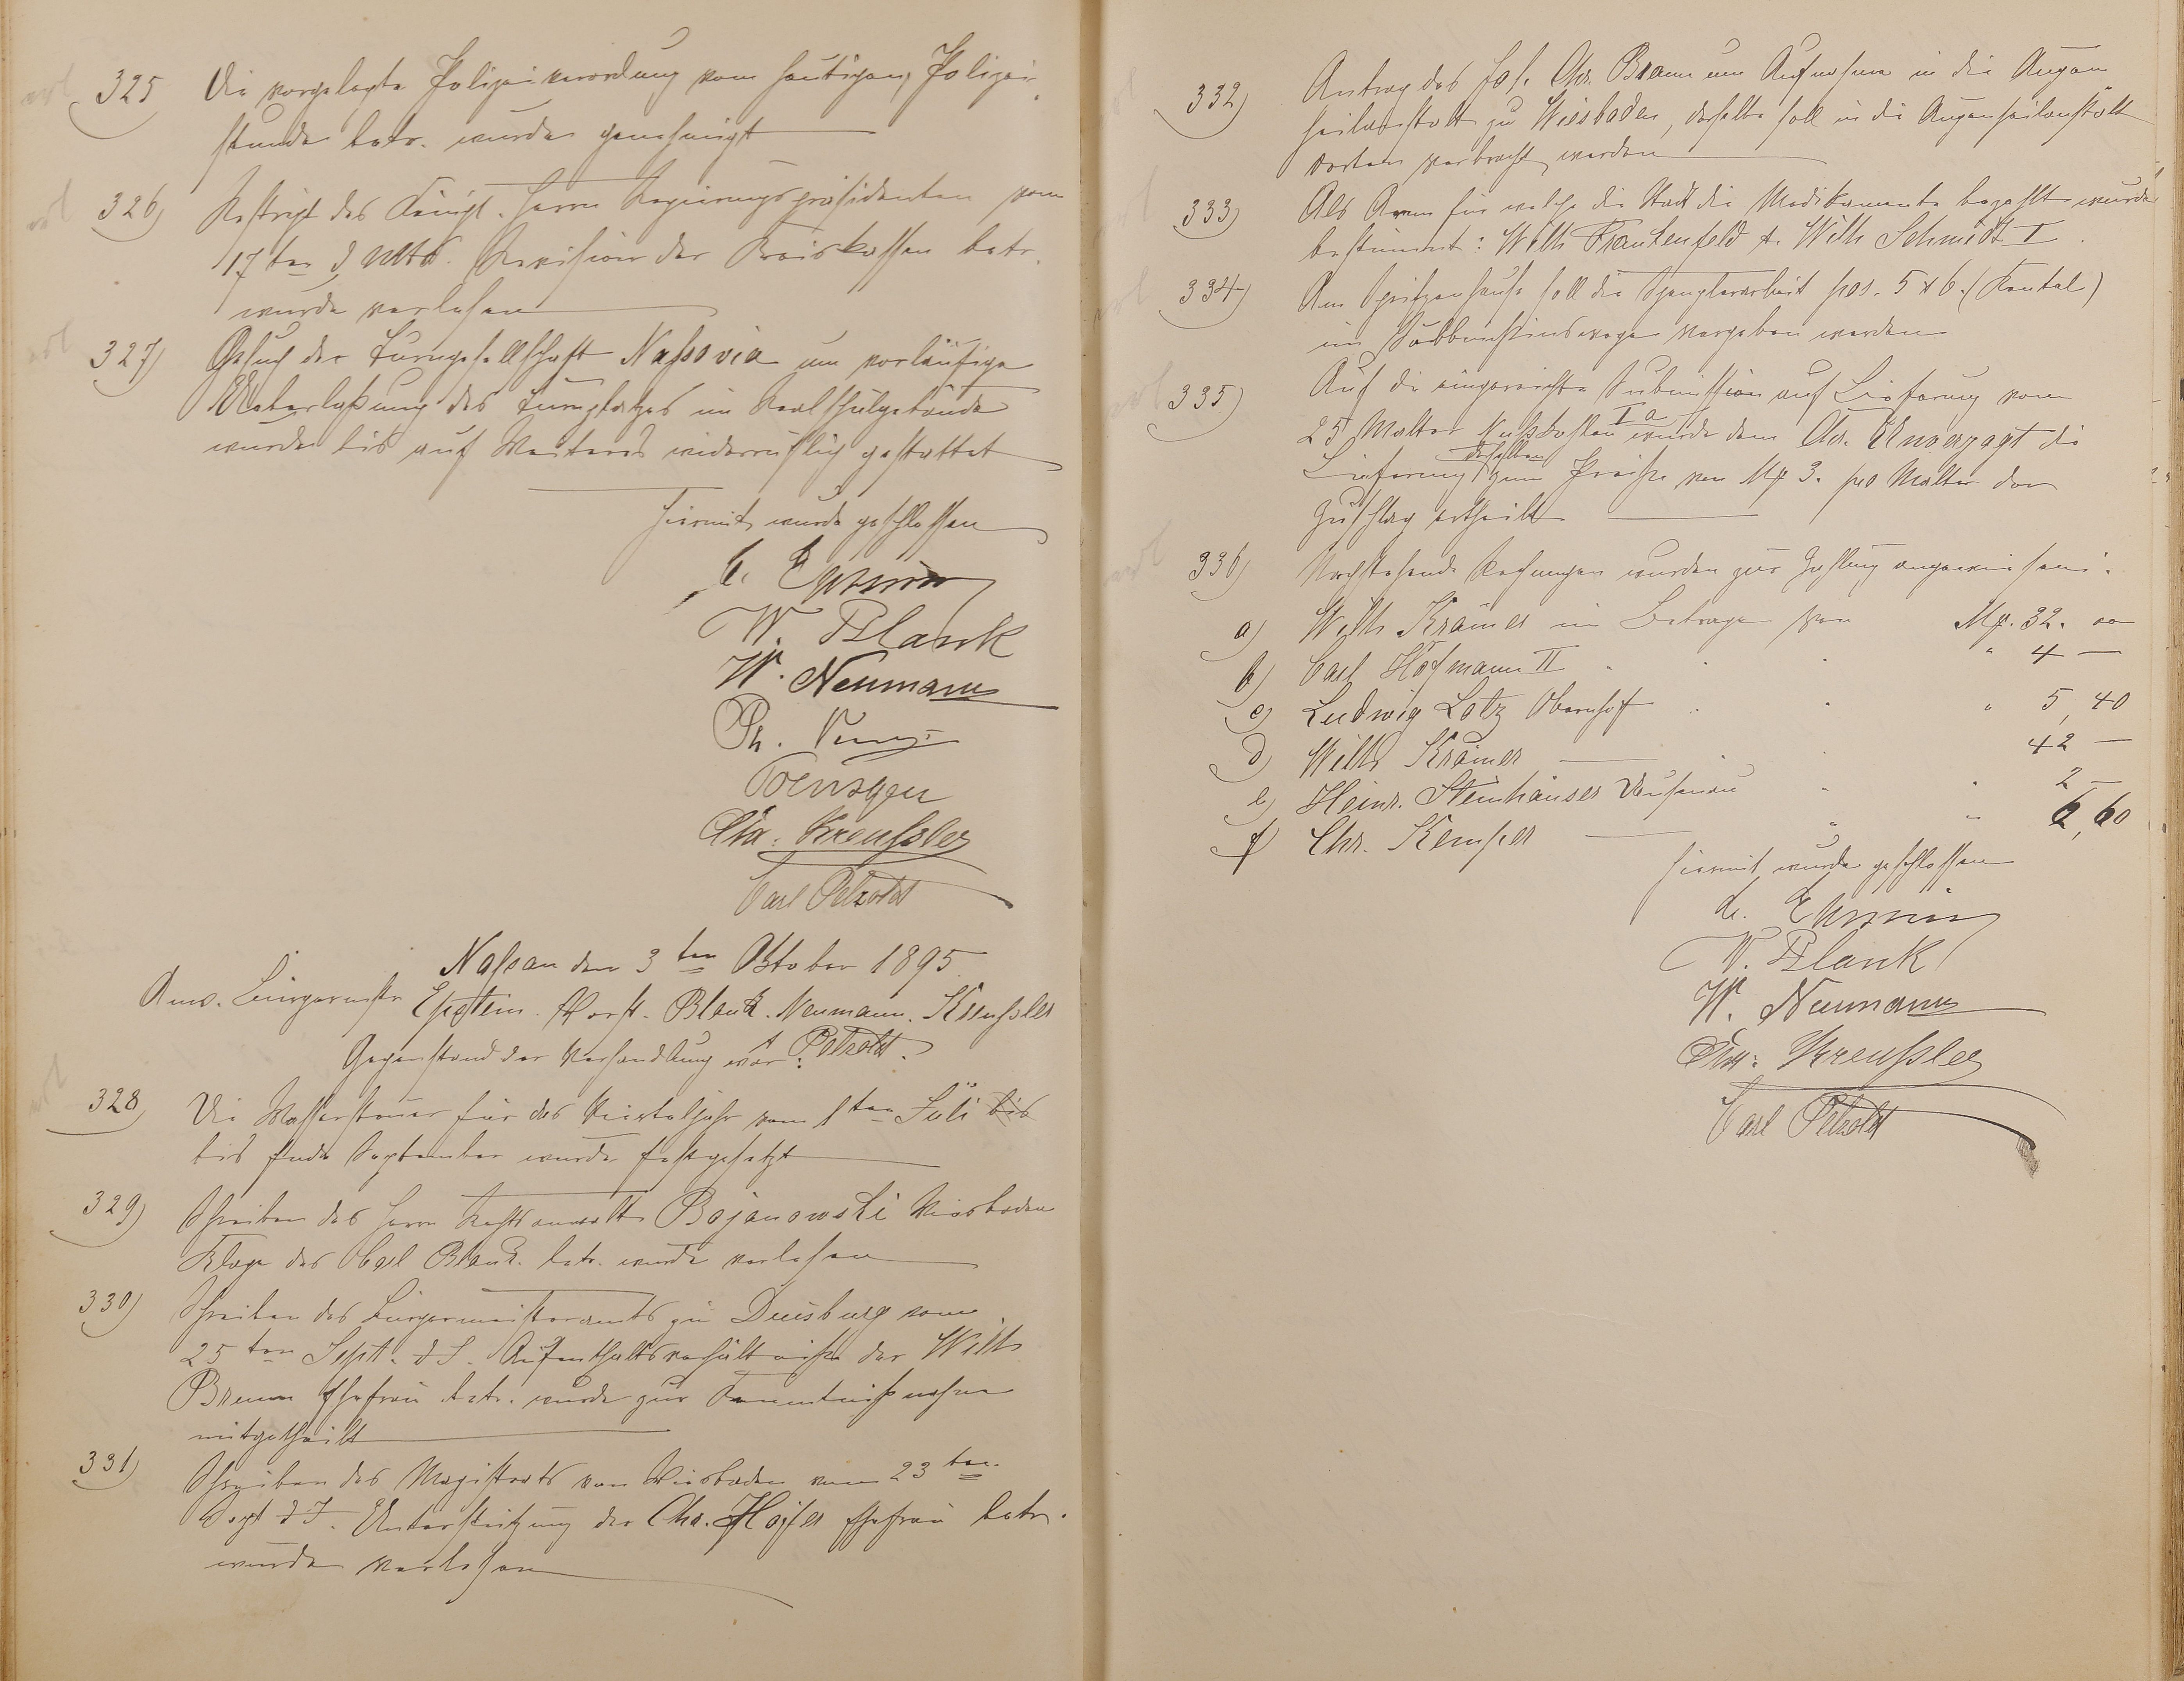 325 Die vorgelegte Polizeiverordnung vom heutigen, Polizei-
stunde betr. wurde genehmigt
326) Reskript des Königl. Herrn Regierungspräsidenten vom
17ten d. Mts. Revision der Kreiskassen betr.
wurde verlesen
327) Gesuch der Turngesellschaft Nassovia um vorläufige
Ueberlaßung des Turnplatzes im Realschulgebäude
wurde bis auf Weiteres widerruflich gestattet
Hiermit wurde geschlossen
W. Blank
W. Neumann
Ph.
Chr. Kreußler
Carl Petzoldt
Naßau den 3ten Oktober 1895
Anw. Bürgermstr Epstein. Vorst. Blank. Neumann. Kreußler
& Petzoldt.
Gegenstand der Verhandlung war:
328) Die Wassersteuer für das Vierteljahr vom 1ten Juli bis
bis Ende September wurde festgesetzt
329) Schreiben des Herrn Rechtsanwalts Bojanowski Wiesbaden
Klage des Carl Blank. betr. wurde verlesen
330) Schreiben des Bürgermeisteramts zu Duisburg vom
25ten Sept. d J. Aufenthaltsverhältnisse der Wilh
Bremm Ehefrau betr. wurde zur Kenntnißnahme
mitgetheilt
331) Schreiben des Magistrats von Wiesbaden vom 23ten
Sept d J. Unterstützung der Chr. Hofer Ehefrau betr.
wurde verlesen
332) Antrag des Jos. Chr. Braun um Aufnahme in die Augen
heilanstalt zu Wiesbaden, derselbe soll in die Augenheilanstalt
dorten verbracht werden
333) Als Arme für welche die Stadt die Medikamente bezahlt wurde
bestimmt: Wilh Trautenfeld & Wilh Schmidt I.
334) Am Spritzenhause soll die Spenglerarbeit pos. 5 & 6. (Kantel)
im Submissionswege vergeben werden
335) Auf die eingereichte Submission auf Lieferung von
25 Malter Nußkohlen Ia wurde dem Chr. Unverzagt die
Lieferung derselben zum Preise von Mk 3. pro Malter der
Zuschlag ertheilt
336) Nachstehende Rechnungen wurden zur Zahlung angewiesen:
a) Wilh Krämer im Betrage von Mk. 32. 00
b) Carl Hofmann II " " " 4 —
c) Ludwig Lotz Obernhof " " " 5,40
d) Wilh Krämer — " " 42 —
e) Heinr. Steinhäuser Dausenau " " 2 —
f) Chr. Kemper — " " 6,60
Hiermit wurde geschlossen
W. Blank
W. Neumann
Chr. Kreußler
Carl Petzoldt